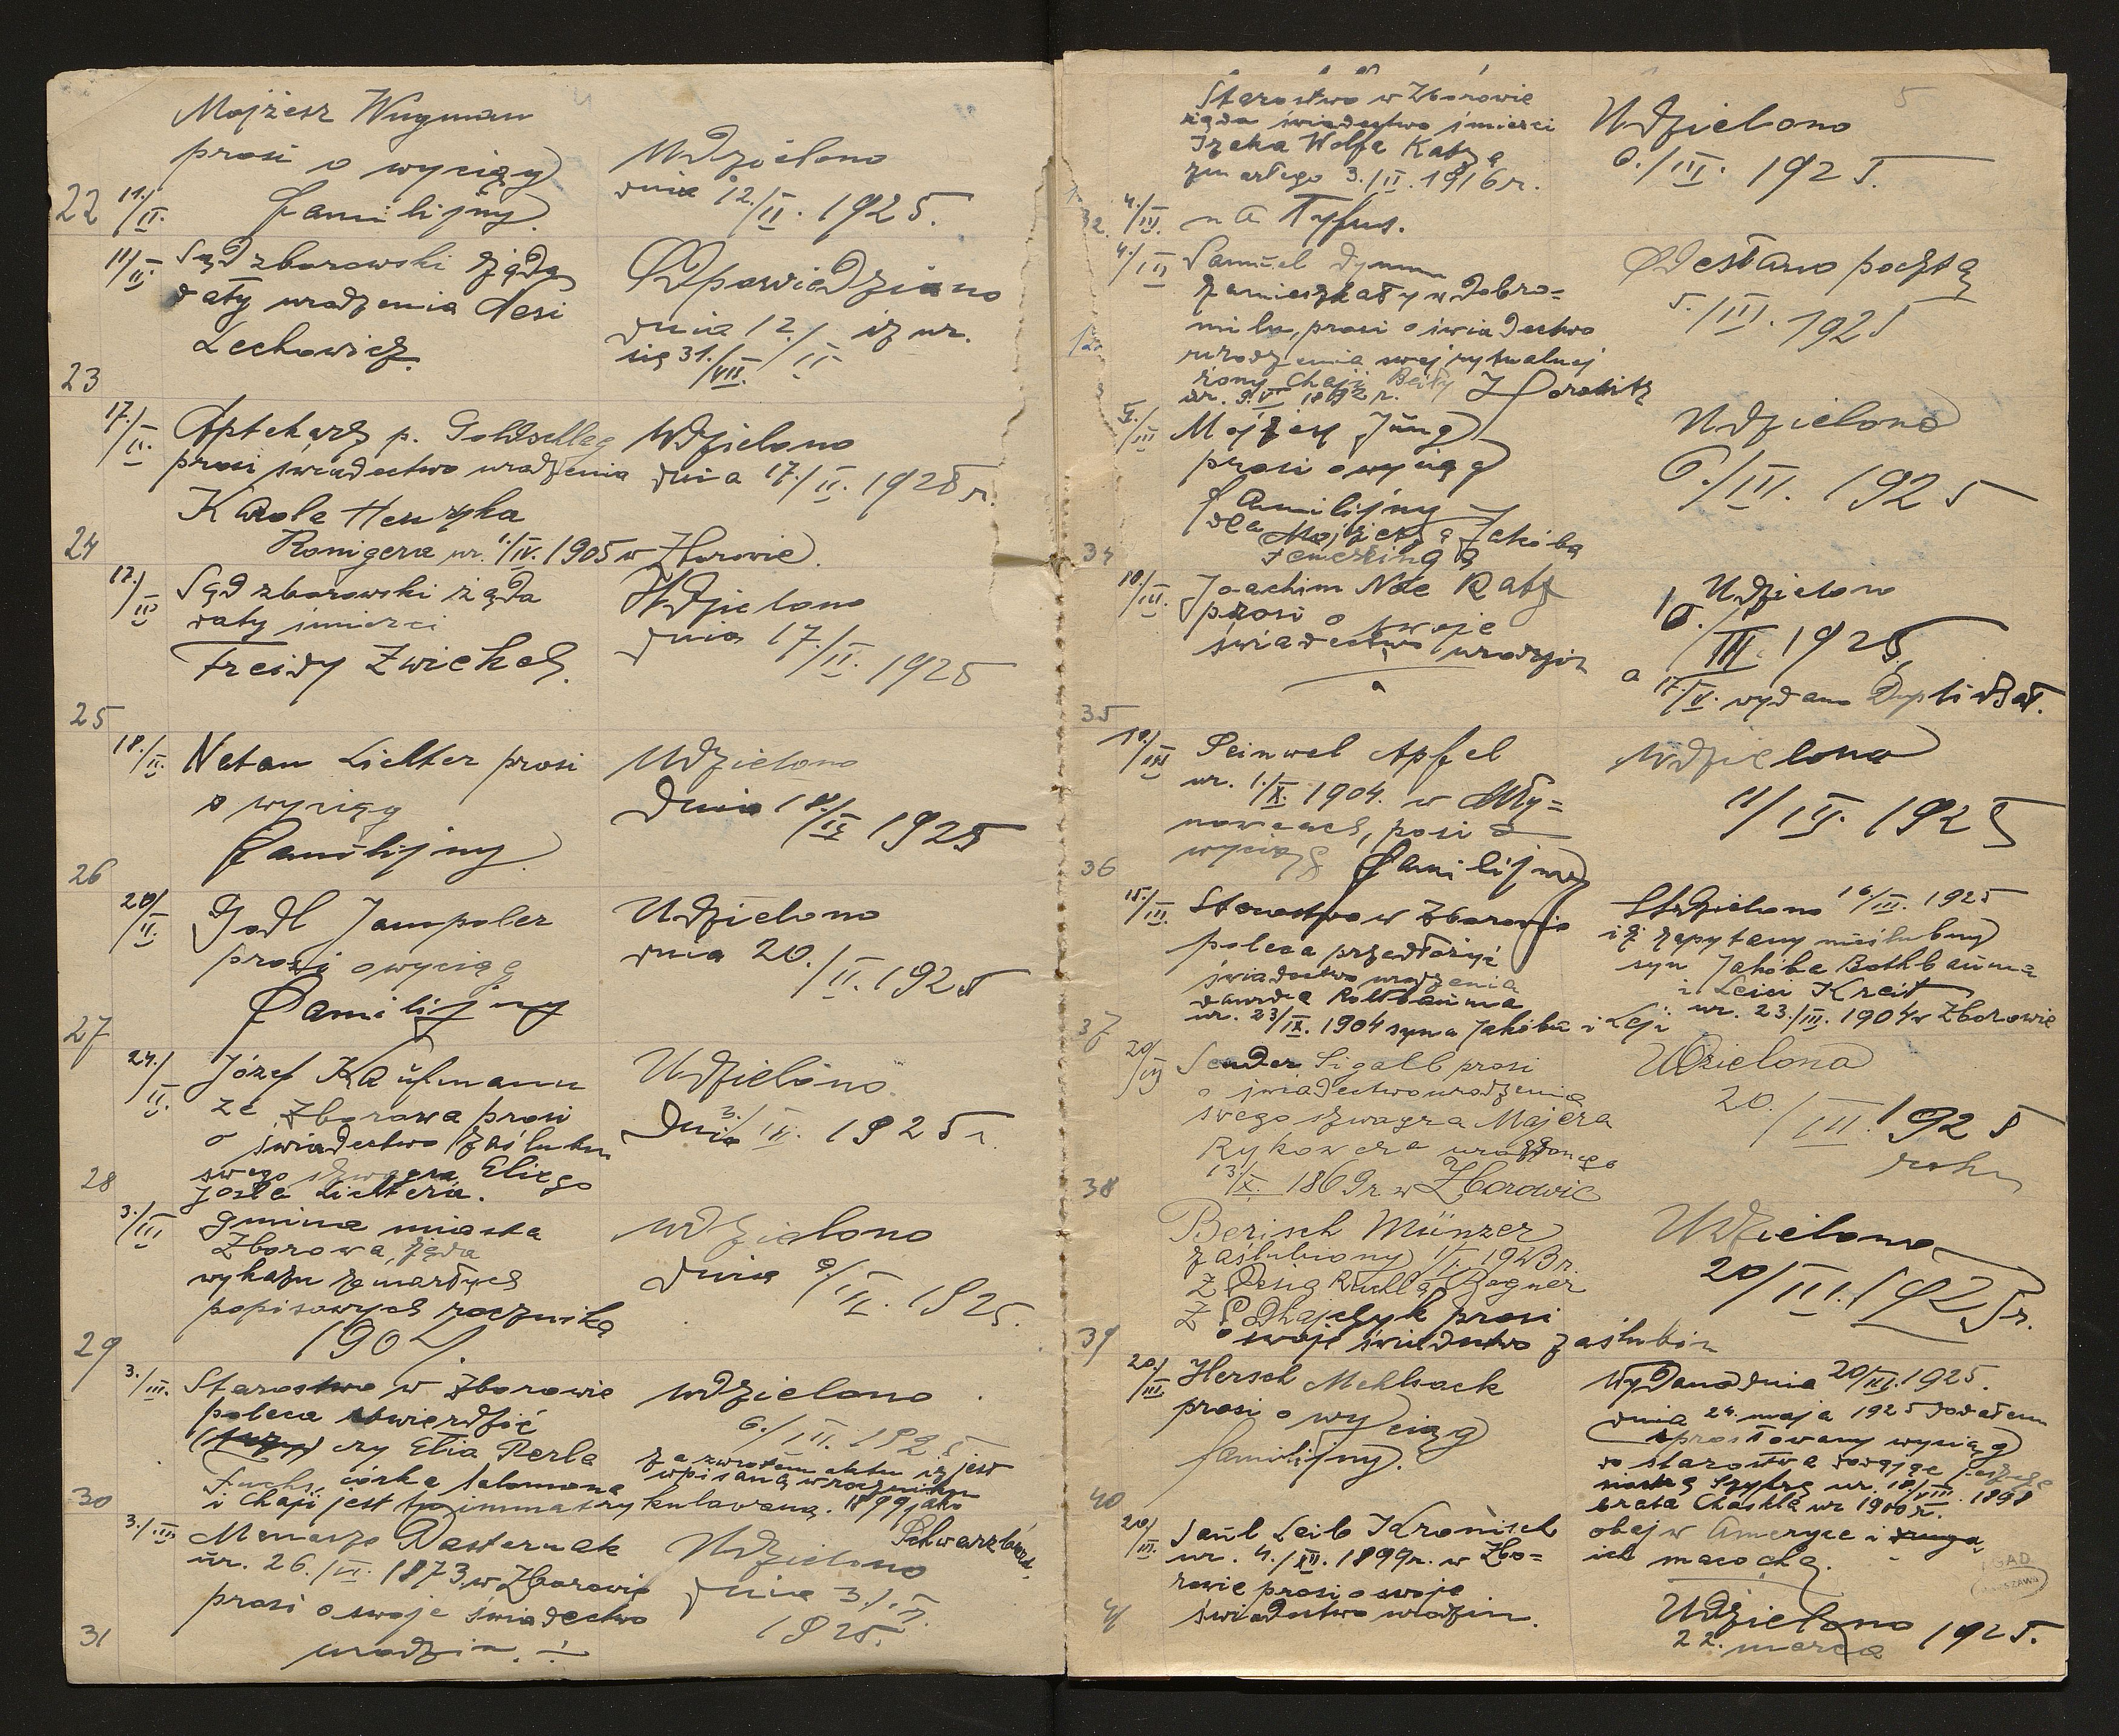 Mojżesz Wugman
prosi o wyciąg
22 11./II. familijny.
Udzielono
dnia 12./II. 1925.
11/II. Sąd zborowski żąda
daty urodzenia Nesi
Lechowicz.
23
Odpowiedziano
dnia 12./II iż ur.
się 31./VII.
17./II. Aptekarz p. Goldschlag
prosi świadectwo urodzenia
Karola Henryka
24 Romigera ur. 1./IV. 1905 w Zborowie.
Udzielono
dnia 17./II. 1925 r.
17./II Sąd zborowski żąda
daty śmierci
Freidy Zwickel.
25
Udzielono
dnia 17./II. 1925
18./II. Natan Lichter prosi
o wyciąg
familijny.
26
Udzielono
dnia 18./II 1925
20/II. Godl Jampoler
prosi o wyciąg
familijny
27
Udzielono
dnia 20./II. 1925
24./II. Józef Kaufmann
ze Zborowa prosi
o świadectwo zaślubin
swego szwagra Eliego
28 Josla Lichtera.
Udzielono
dnia 3./III. 1925 r.
3./III Gmina miasta
Zborowa żąda
wykazu zmarłych
popisowych rocznika
29 1904.
udzielono
dnia 9/III. 1925.
3./III. Starostwo w Zborowie
poleca stwierdzić
czy Etia Perla
Fuchs, córka Salomona
30 i Chaji jest tu immatrykulowaną.
udzielono
6./III. 1925
za zwrotem aktu iż jest
wpisaną w roczniku
1899 jako
Schwarzbard.
3./III Menasze Pasternak
ur. 26./VI. 1873 w Zborowie
prosi o swoje świadectwo
31 urodzin.
Udzielono
dnia 3./III.
1925.
5
Starostwo w Zborowie
żąda świadectwo śmierci
Izaka Wolfa Katza
zmarłego 3./II. 1916 r.
32. 4./III. na Tyfus.
Udzielono
6./III. 1925.
4./III Samuel Dymm
zamieszkały w Dobro=
milu, prosi o świadectwo
urodzenia swej rytualnej
żony Chaji Beily Horowitz
ur. 9.VI 1892 r.
Odesłano pocztą
5./III. 1925
5./III Mojżesz Jung
prosi o wyciąg
familijny
dla Mojżesza Jakóba
34
Udzielono
6./III. 1925
10./III. Joachim Noe Katz
prosi o swoje
świadectwo urodzin
35
Udzielono
10./III. 1925
a 17./V. wydano Duplikat.
10./III Feiwel Apfel
ur. 1./X. 1904. w Mły=
nowcach, posi o
36 wyciąg familijny
Udzielono
11/III. 1925
15./III. Starostwo w Zborowie
poleca przedłożyć
świadectwo urodzenia
Dawida Rothbauma
37 ur. 23/IX. 1904 syna Jakóba i Leji
Udzielono 16/III. 1925
iż zapytany nieślubny
syn Jakóba Rothbauma
i Leici Kreit
ur. 23./III. 1904 w Zborowie
20/III Sender Sigall prosi
o świadectwo urodzenia
swego szwagra Majera
Rykowera urodzonego
38 13./X. 1869 r w Zborowie
Udzielono
20./III. 1925
roku
Berisch Münzer
zaślubiony 1/I. 1923 r.
z Pesią Ruchlą Bogner
z Podhajczyk prosi
39 o swoje świadectwo zaślubin
Udzielono
20/III. 1925 r.
20./III Hersch Mehlsack
prosi o wyciąg
familijny.
40
Wydano dnia 20/III. 1925.
dnia 24. maja 1925 dodałem
sprostowany wyciąg
do starostwa dodając jeszcze
siostrę ur. 18./VIII. 1898
brata Chaskla ur 1900 r.
obaj w Ameryce i druga
ich macocha.
20/III. Saul Leib Kronisch
ur. 4./XII. 1899 r. w Zbo=
rowie prosi o swoje
41 świadectwo urodzin.
Udzielono
22. marca 1925.
AGAD
WARSZAWA